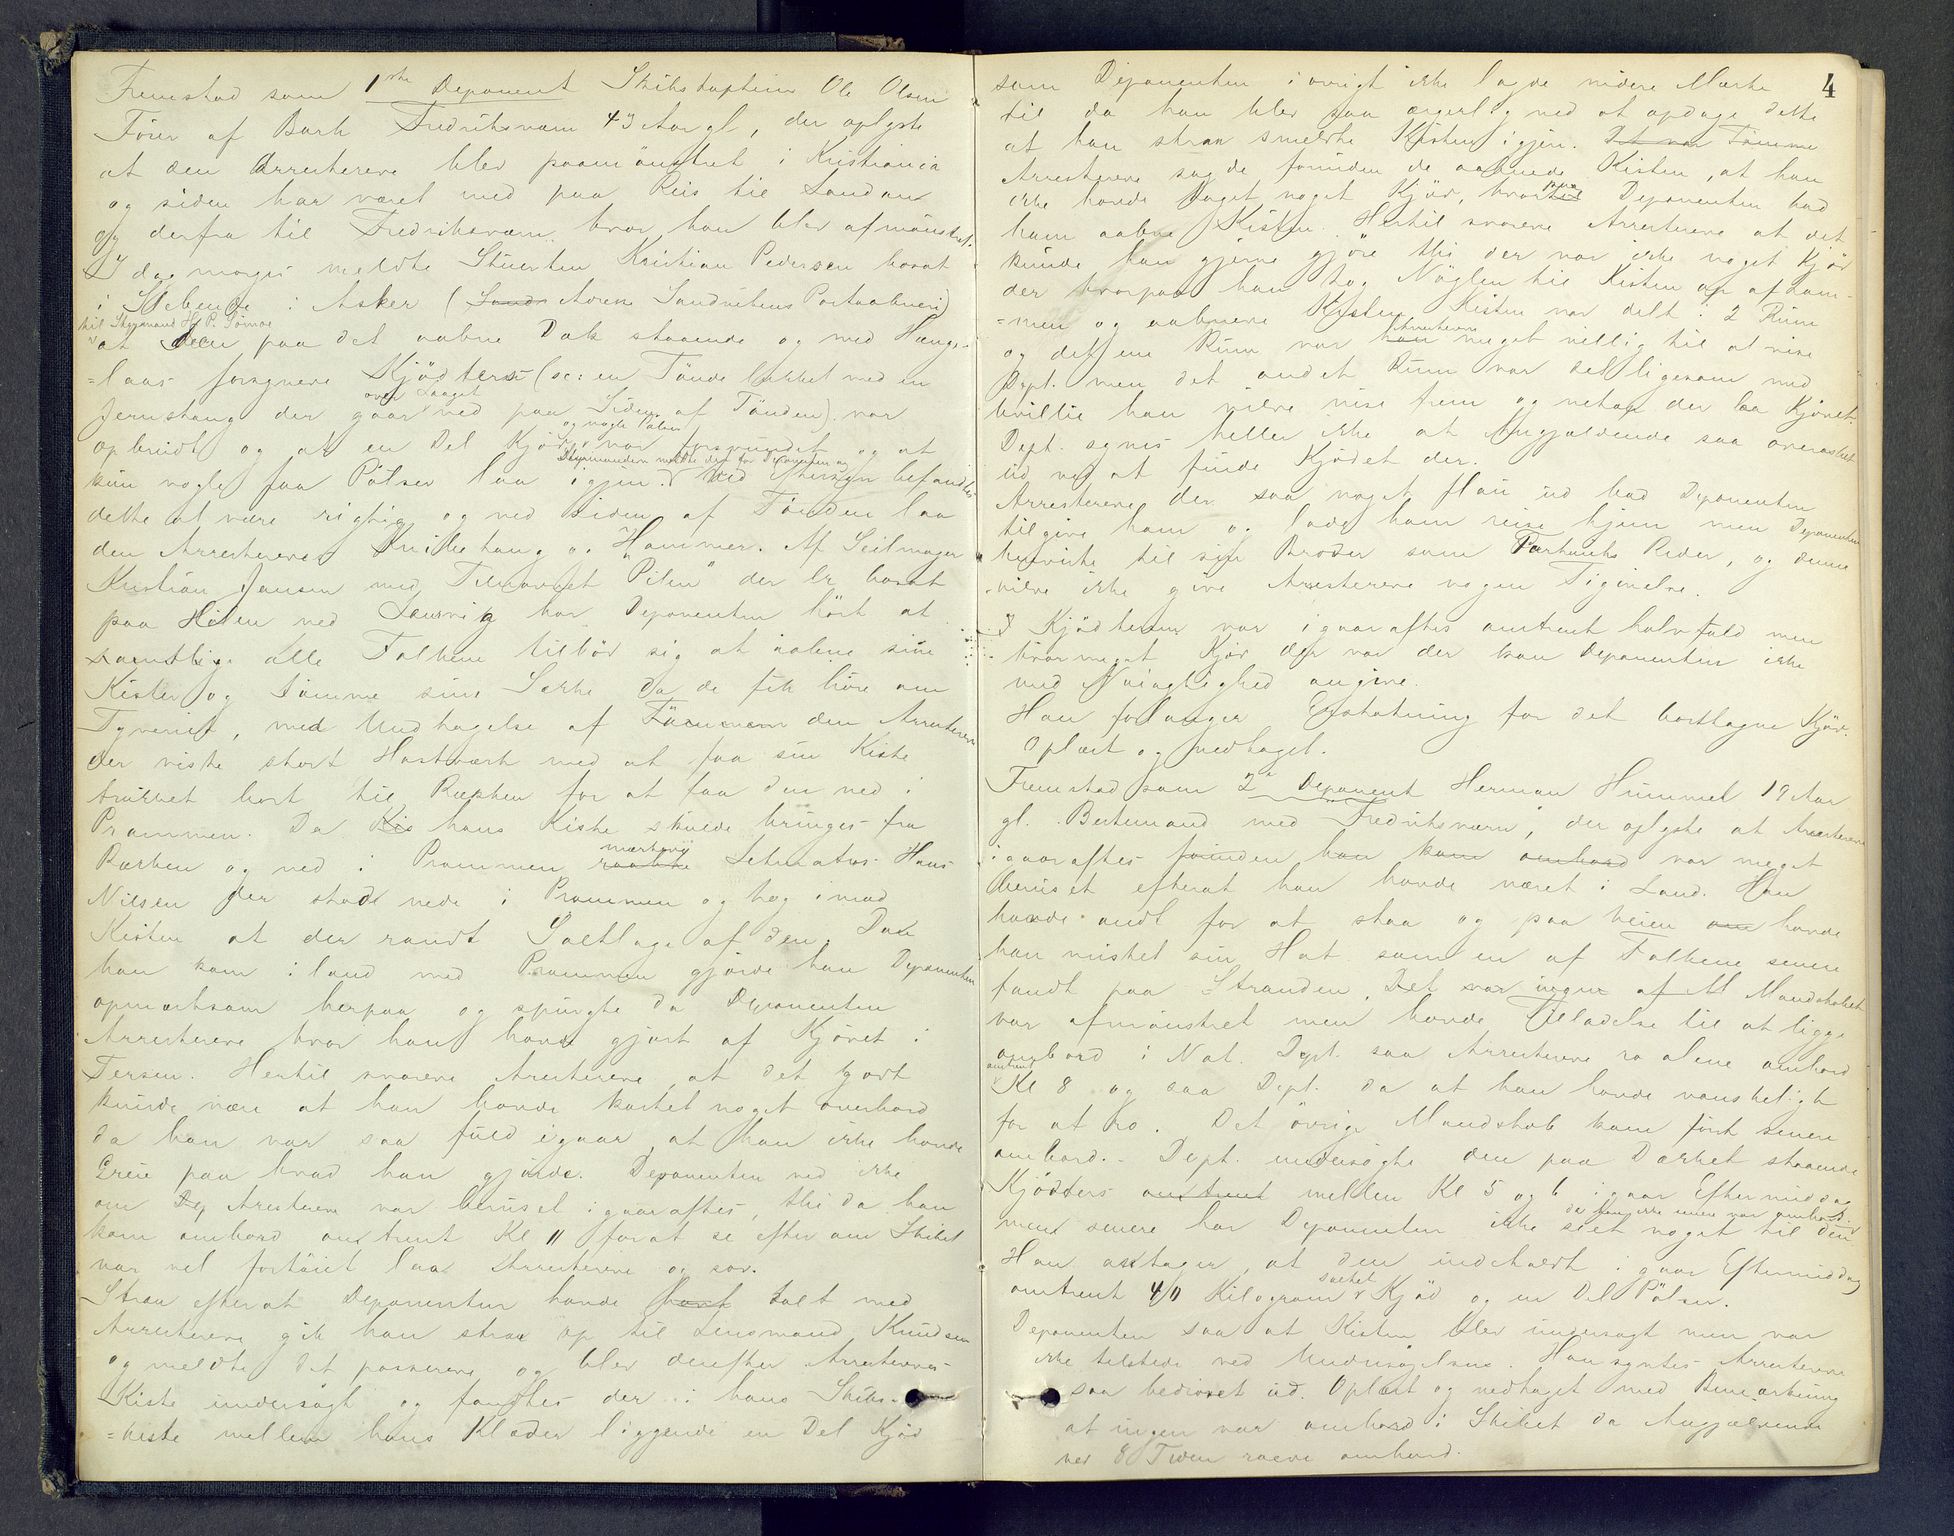 Fremstod som 1ste Deponent Skibskaptein Ole Olsen
Fører af Bark Fredriksværn 43 Aar gl, der oplyste
at den Arresterede blev paamönstret i Kristiania
og siden har været med paa Reis til London
og derfra til Fredriksværn hvor han blev afmönstret.
I dag morges meldte Stuerten Kristian Pedersen boeat
i Slebende i Asker (Sands Adresse Sandvikens Postaabneri)
til Styrmand H. P.
at den paa det aabne Dæk staaende og med Hænge-
=laas forsynede Kjödters (sc: en Tönde lukket med en
over Laaget
Jernstang der gaar ned paa Siden af Tönden) var
og nogle Pölser
opbrudt og at en Del Kjöd var forsvundet og at
Styrmanden meldte det for Deponenten og
kun nogle faa Pölser laa igjen. Ved Eftersyn befandtes
dette at være rigtig og ved Siden af Tönden laa
den Arresteredes Knibetang og Hammer. Af Seilmager
Kristian Jansen med "Pilen" der er boeat
paa ved Laurvig har Deponenten hört at
samtlige alle Folkene tilböd sig at aabne sine
Kister og tömme sine Sække da de fik höre om
Tyveriet, med Undtagelse af den Arresterede
der viste stort Hastværk med at faa sin Kiste
trukket bort til Rækken for at faa den ned i
Prammen. Da Kis hans Kiste skulde bringes fra
mærkede
Rækken og ned i Prammen raabte Letmatros Hans
Nilsen der stod nede i Prammen og tog imod
Kisten at der randt Saltlage af den. Da
han kom i land med Prammen gjorde han Deponenten
opmærksom herpaa og spurgte da Deponenten
Arresterede hvor han havde gjort af Kjödet i
Tersen. Hertil svarede Arresterede, at det godt
kunde være at han havde kastet noget overbord
da han var saa fuld igaar at han ikke havde
Greie paa hvad han gjorde. Deponenten ved ikke
om Dep Arresterede var beruset igaaraftes, thi da han
kom ombord omtrent Kl 11 forat se efter om Skibet
var vel fortöiet laa Arresterede og sov.
Strax efterat Deponenten havde talt med
Arresterede gik han strax op til Lensmand Knudsen
og meldte det passerede og blev derefter Arresteredes
Kiste undersögt og fandtes der i hans Skibs-
=kiste mellem hans Klæder liggende en Del Kjöd
4
som Deponenten iövrigt ikke lagde videre Mærke
til da han blev saa ærgerlig ved at opdage dette
at han strax smeldte Kisten igjen. Det var Tömme
Arresterede sagde forinden de aabnede Kisten, at han
ikke havde taget noget Kjöd, hvorpaa Deponenten bad
ham aabne Kisten. Hertil svarede Arresterede at det
kunde han gjerne gjöre thi der var ikke noget Kjöd
der hvorpaa han tog Nöglen til Kisten op af Lom-
=men og aabnede Kisten. Kisten var delt i 2 Rum
Arresterede
og det ene Rum var han meget villig til at vise
Dept. men det andet Rum var det ligesom med
Uvillie han vilde vise frem og netop der laa Kjödet.
Dept. synes heller ikke at Angjældende saa overrasket
ud ved at finde Kjödet der.
Arresterede der saa noget flau ud bad Deponenten
tilgive ham og lade ham reise hjem men Deponenten
henviste til sin Broder som Parthaver Reder, og denne
vilde ikke give Arresterede nogen Tilgivelse.
I Kjödtersen var igaaraftes omtrent halvfuld men
hvormeget Kjöd der var der kan Deponenten ikke
med Nöiagtighed angive.
Han forlanger Erstatning for det borttagne Kjöd.
Oplæst og vedtaget.
Fremstod som 2d Deponent Herman Hummel 19 Aar
gl. Bestemand med "Fredriksværn", der oplyste at Arresterede
igaaraftes forinden han kom ombord var meget
beruset efterat han havde været i Land. Han
havde ondt for at staa og paa Veien om havde
han mistet sin Hat som en af Folkene senere
fandt paa Stranden. Det var ingen af M Mandskabet
var afmönstret men havde Tilladelse til at ligge
ombord i Nat. Dept. saa Arresterede ro alene ombord
omtrent
Kl 8 og saa Dept. da at han havde vanskeligt
for at ro. Det övrige Mandskab kom först senere
ombord. - Dept. undersögte den paa Dækket staaende
Kjödters omtrent mellem Kl 5 og 6 igaar Eftermiddag
da han ikke senere var ombord
men senere har Deponenten ikke seet noget til den
Han antager, at den indeholdt i gaar Eftermiddag
saltet
omtrent 40 Kilogram Kjöd og en Del Pölser.
Deponenten saa at Kisten blev undersögt men var
ikke tilstede ved Undersögelsen. Han syntes Arresterede
saa bedrövet ud. Oplæst og vedtaget med Bemærkning
at ingen var ombord i Skibet da Angjældende
ved 8 Tiden roede ombord.